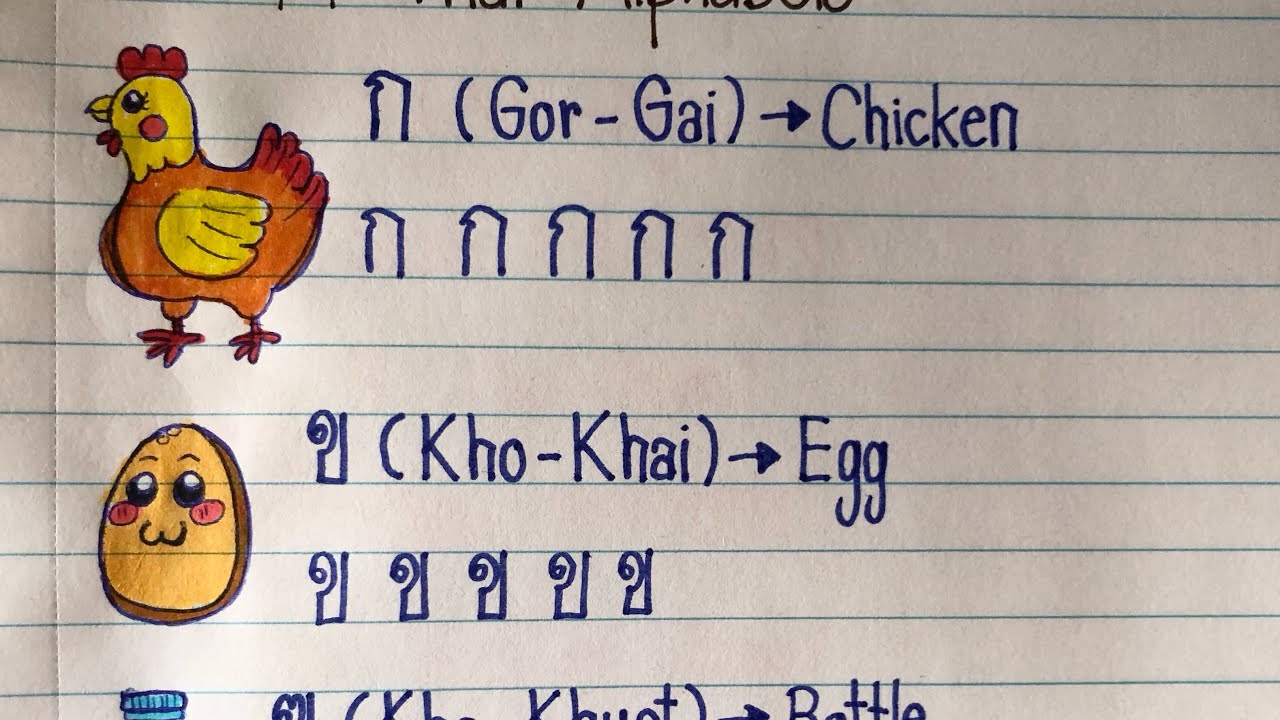 Thai Alphabets
ก (Gor-Gai) → Chicken
ก ก ก ก ก
ข (Kho-Khai) → Egg
ข ข ข ข ข
ฃ (Kho-Khuat) → Bottle